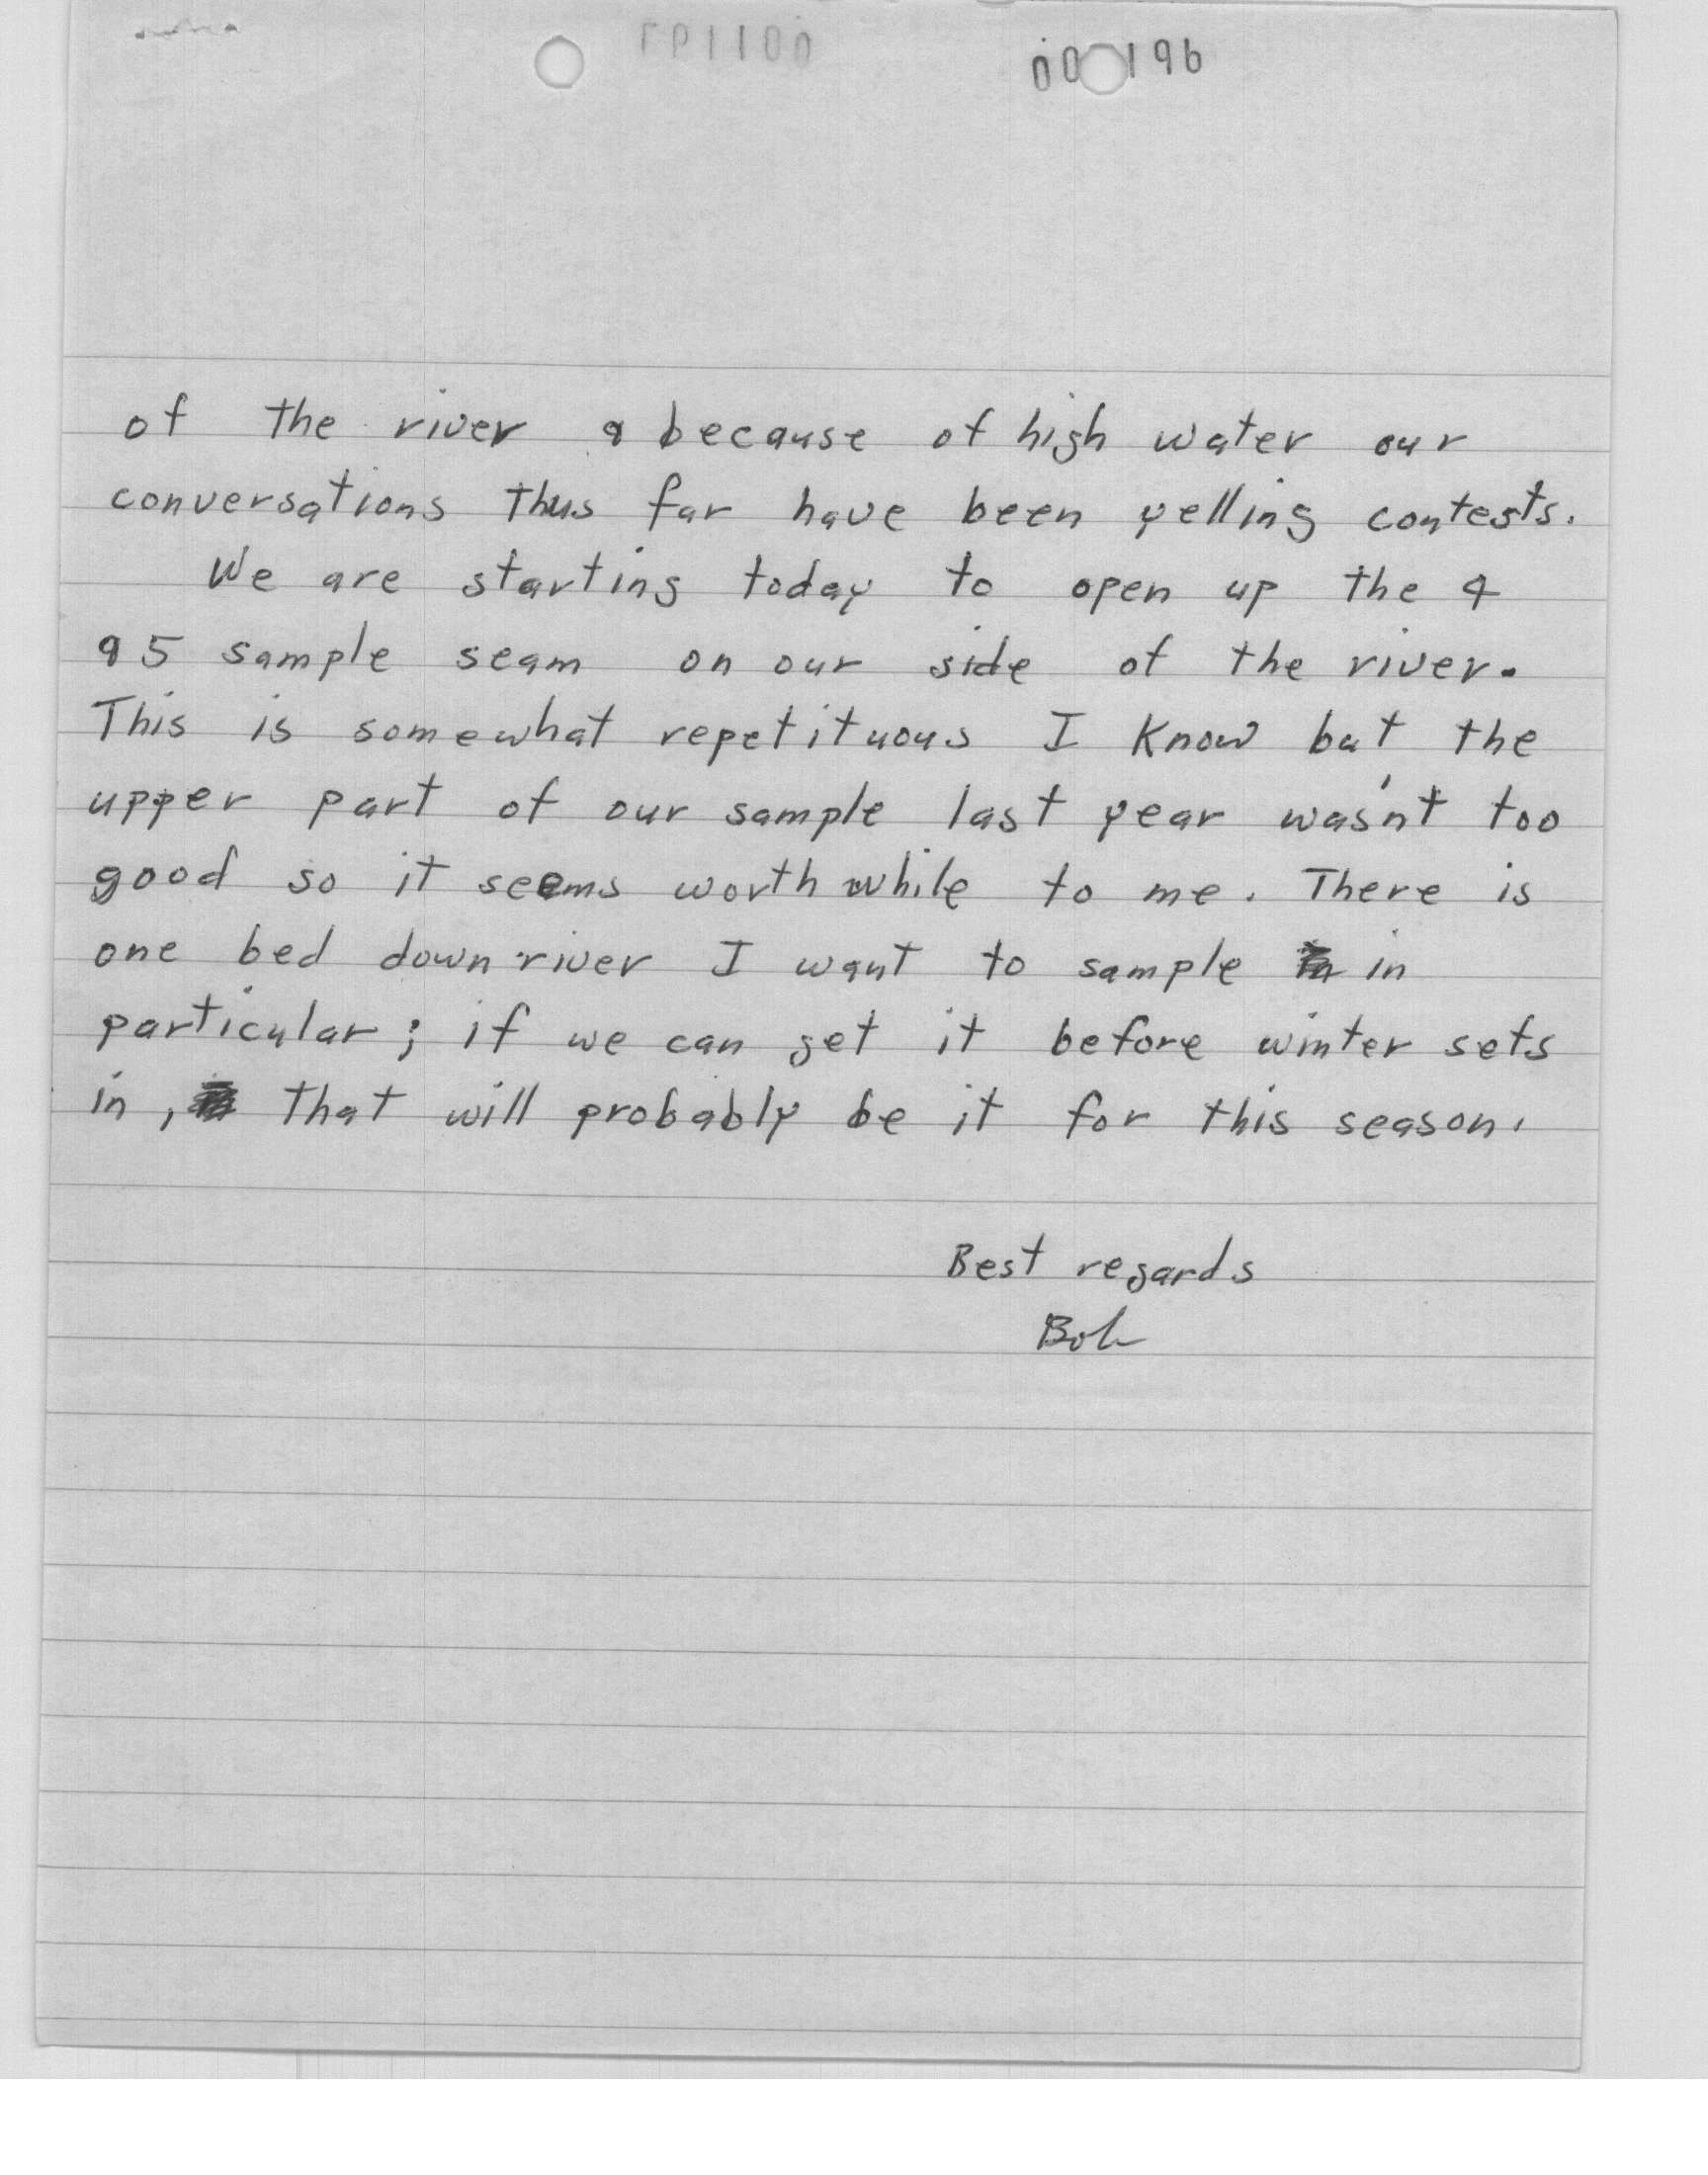 00 196
of the river & because of high water our
conversations thus far have been yelling contests.
We are starting today to open up the 4
95 sample seam on our side of the river.
This is somewhat repetituous I know but the
upper part of our sample last year wasn't too
good so it seems worth while to me. There is
one bed down river I want to sample in
particular; if we can get it before winter sets
in, that will probably be it for this season.
Best regards
Bob